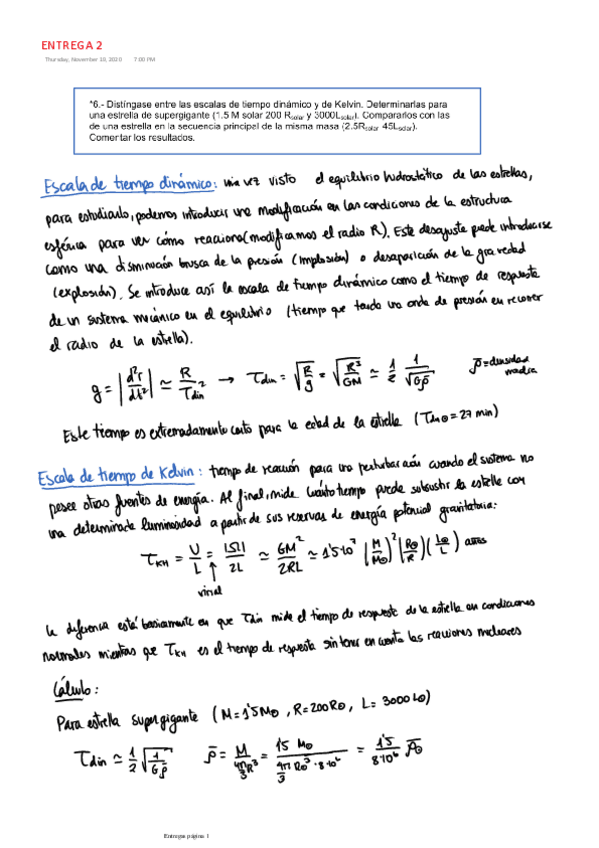 ENTREGA 2
Thursday, November 19, 2020 7:00 PM
*6.- Distíngase entre las escalas de tiempo dinámico y de Kelvin. Determinarlas para
una estrella de supergigante (1.5 M solar 200 Rsolar y 3000Lsolar). Compararlos con las
de una estrella en la secuencia principal de la misma masa (2.5Rsolar 45Lsolar).
Comentar los resultados.
Escala de tiempo dinámico: una vez visto el equilibrio hidrostático de las estrellas,
para estudiarlo, podemos introducir una modificación en las condiciones de la estructura
esférica para ver cómo reacciona (modificamos el radio R). Este desajuste puede introducirse
como una disminución brusca de la presión (implosión) o desaparición de la gravedad
(explosión). Se introduce así la escala de tiempo dinámico como el tiempo de respuesta
de un sistema mecánico en el equilibrio (tiempo que tarda una onda de presión en recorrer
el radio de la estrella).
g = |d²r/dt²| ≃ R/τdin² → τdin = √(R/g) = √(R³/GM) ≃ 1/2 1/√(Gρ̄) ρ̄ = densidad media
Este tiempo es extremadamente corto para la edad de la estrella (τdin⊙ = 27 min)
Escala de tiempo de Kelvin: tiempo de reacción para una perturbación cuando el sistema no
posee otras fuentes de energía. Al final, mide cuánto tiempo puede subsistir la estrella con
una determinada luminosidad a partir de sus reservas de energía potencial gravitatoria:
τKH = U/L = |Ω|/2L ≃ GM²/2RL ≃ 1'5·10⁷ (M/M⊙)² (R⊙/R) (L⊙/L) años
↑
virial
La diferencia está básicamente en que τdin mide el tiempo de respuesta de la estrella en condiciones
normales mientras que τKH es el tiempo de respuesta sin tener en cuenta las reacciones nucleares
Cálculo:
Para estrella supergigante (M = 1'5 M⊙, R = 200 R⊙, L = 3000 L⊙)
τdin ≃ 1/2 √(1/Gρ̄) ρ̄ = M/(4π/3 R³) = 1'5 M⊙/(4π/3 R⊙³·8·10⁶) = 1'5/8·10⁶ ρ̄⊙
Entregas página 1